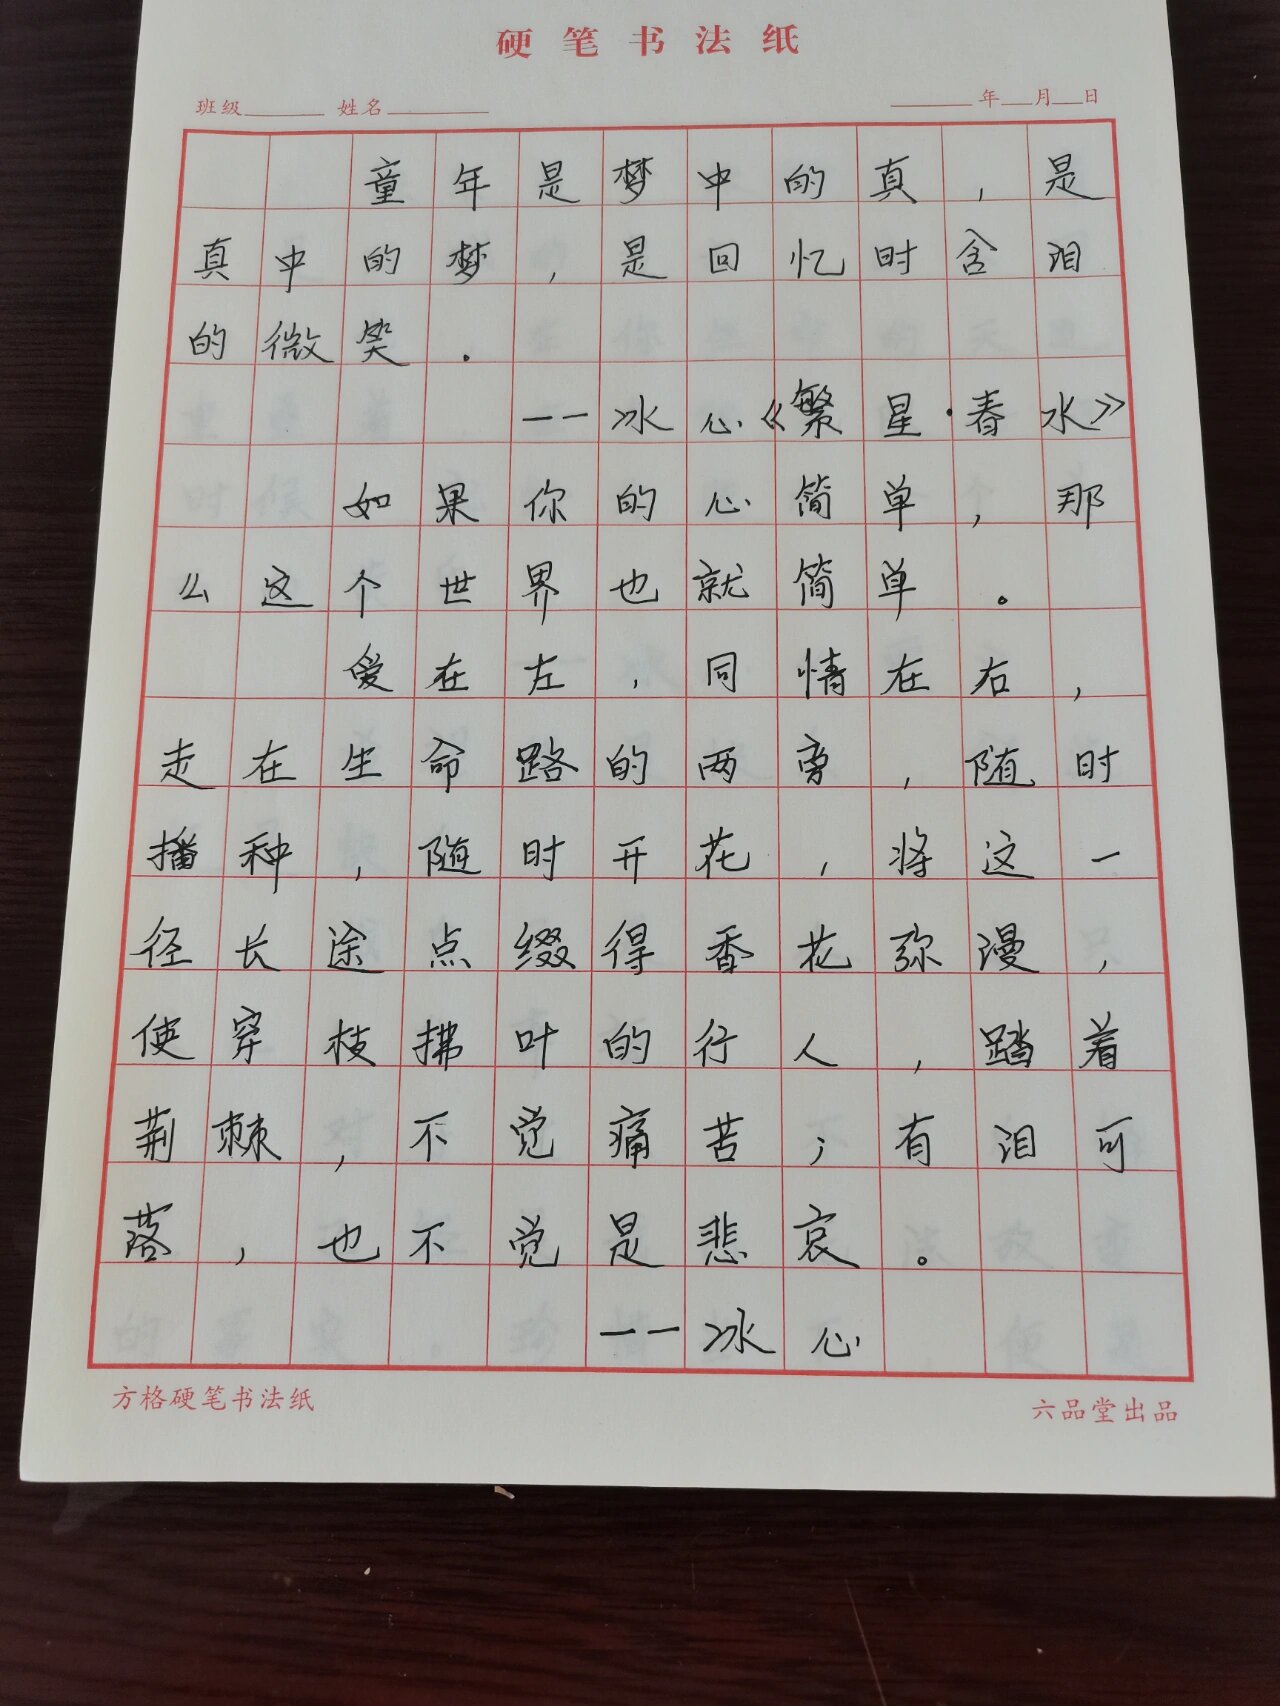 硬笔书法纸
班级 姓名 年 月 日
童年是梦中的真，是
真中的梦，是回忆时含泪
的微笑．
——冰心《繁星·春水》
如果你的心简单，那
么这个世界也就简单。
爱在左，同情在右，
走在生命路的两旁，随时
播种，随时开花，将这一
径长途点缀得香花弥漫，
使穿枝拂叶的行人，踏着
荆棘，不觉痛苦；有泪可
落，也不觉是悲哀。
——冰心
方格硬笔书法纸 六品堂出品